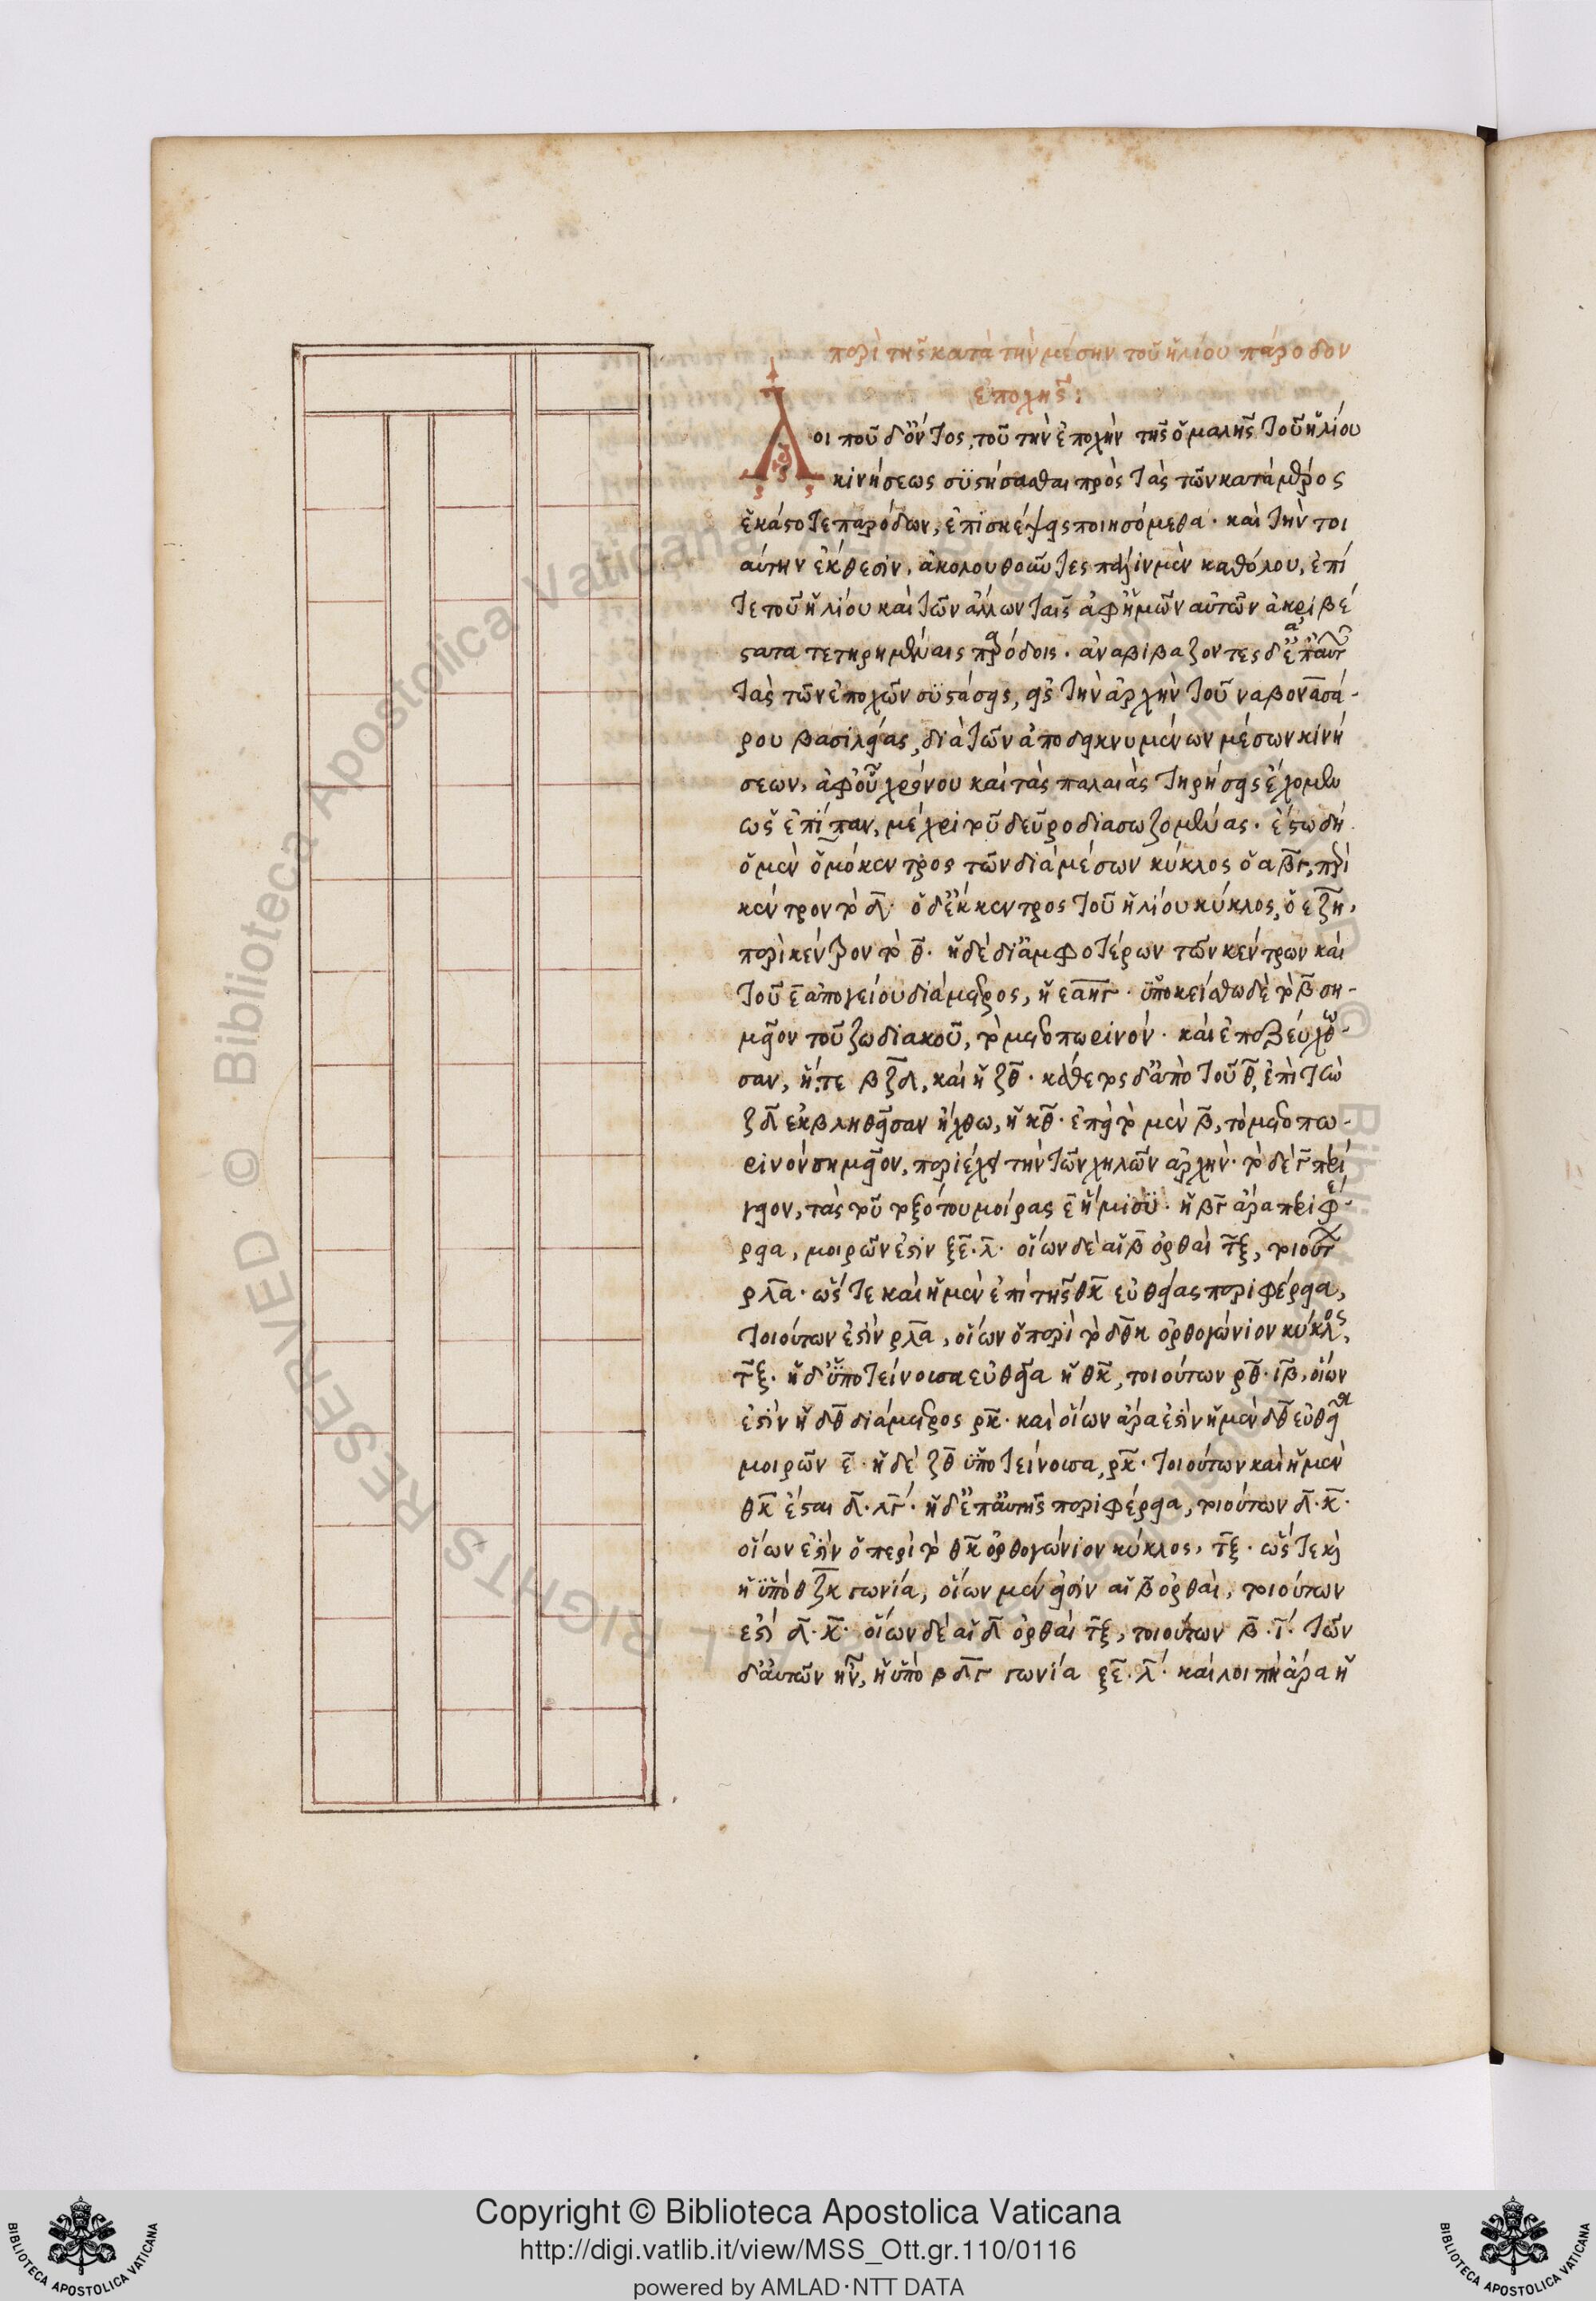 περὶ τῆς κατὰ τὴν μέσην τοῦ ἡλίου πάροδον
ἐποχῆς:
Λοι ποῦ δ' ὄντος, τοῦ τὴν ἐποχὴν τῆς ὁμαλῆς τοῦ ἡλίου
κινήσεως συστήσασθαι πρὸς τὰς τῶν κατὰ μέρος
ἑκάστοτε παρόδων, ἐπισκέψεις ποιησόμεθα· καὶ τὴν τοι
αύτην ἔκθεσιν, ἀκολουθοῦντες πάλιν μὲν καθόλου, ἐπί
τε τοῦ ἡλίου καὶ τῶν ἄλλων ταῖς ἀφ' ἡμῶν αὐτῶν ἀκριβέ
στατα τετηρημέναις παρόδοις· ἀναβιβάζοντες δὲ ἀπ' αὐτῶν
τὰς τῶν ἐποχῶν συστάσεις, εἰς τὴν ἀρχὴν τοῦ ναβονασά-
ρου βασιλείας, διὰ τῶν ἀποδεικνυμένων μέσων κινή
σεων, ἀφ' οὗ χρόνου καὶ τὰς παλαιὰς τηρήσεις ἔχομεν
ὡς ἐπίπαν, μέχρι τοῦ δεῦρο διασωζομένας· ἔστω δὴ
ὁ μὲν ὁμόκεντρος τῶν διὰ μέσων κύκλος ὁ αβγ, περὶ
κέντρον τὸ δ· ὁ δ' ἔκκεντρος τοῦ ἡλίου κύκλος, ὁ εζη,
περὶ κέντρον τὸ θ· ἡ δὲ δι' ἀμφοτέρων τῶν κέντρων καὶ
τοῦ ε ἀπογείου διάμετρος, ἡ εαηγ· ὑποκείσθω δὲ τὸ β ση-
μεῖον τοῦ ζωδιακοῦ, τὸ μετοπωρινόν· καὶ ἐπεζεύχθω-
σαν, ἥ τε βζδ, καὶ ἡ ζθ· κάθετος δ' ἀπὸ τοῦ θ, ἐπὶ τὴν
ζδ ἐκβληθεῖσαν ἤχθω, ἡ κθ· ἐπεὶ τὸ μὲν β, τὸ μετοπω-
ρινὸν σημεῖον, περιέχει τὴν τῶν χηλῶν ἀρχήν· τὸ δὲ γ περί
γειον, τὰς τοῦ τοξότου μοίρας ε ἥμισυ· ἡ βγ ἄρα περιφέ-
ρεια, μοιρῶν ἐστιν ξε·λ· οἵων δὲ αἱ β ὀρθαὶ τξ, τοιούτων
ρλα· ὥστε καὶ ἡ μὲν ἐπὶ τῆς θκ εὐθείας περιφέρεια,
τοιούτων ἐστὶν ρλα, οἵων ὁ περὶ τὸ δθκ ὀρθογώνιον κύκλος,
τξ· ἡ δ' ὑποτείνουσα εὐθεῖα ἡ θκ, τοιούτων ρθ·ιβ, οἵων
ἐστὶν ἡ δθ διάμετρος ρκ· καὶ οἵων ἄρα ἐστὶν ἡ μὲν δθ εὐθεῖα
μοιρῶν ε· ἡ δὲ ζθ ὑποτείνουσα, ρκ· τοιούτων καὶ ἡ μὲν
θκ ἔσται δ·λγ· ἡ δὲ ἐπ' αὐτῆς περιφέρεια, τοιούτων δ·κ·
οἵων ἐστὶν ὁ περὶ τὸ θκ ὀρθογώνιον κύκλος, τξ· ὥστε καὶ
ἡ ὑπὸ θζκ γωνία, οἵων μέν εἰσιν αἱ β ὀρθαὶ, τοιούτων
ἐστὶ δ·κ· οἵων δὲ αἱ δ ὀρθαὶ τξ, τοιούτων β·ι· τῶν
δ' αὐτῶν ἦν, ἡ ὑπὸ βδγ γωνία ξε·λ· καὶ λοιπὴ ἄρα ἡ
Copyright © Biblioteca Apostolica Vaticana
http://digi.vatlib.it/view/MSS_Ott.gr.110/0116
powered by AMLAD·NTT DATA
BIBLIOTECA APOSTOLICA VATICANA
BIBLIOTECA APOSTOLICA VATICANA